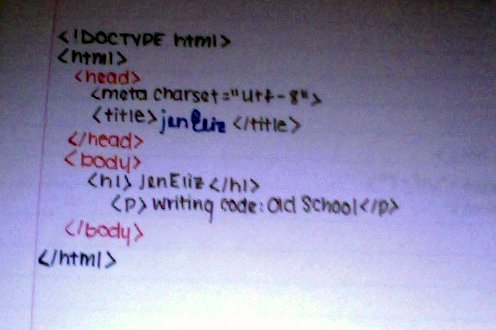 <!DOCTYPE html>
<html>
<head>
<meta charset="utf-8">
<title>jenEliz</title>
</head>
<body>
<h1>JenEliz</h1>
<p>writing code: Old School</p>
</body>
</html>